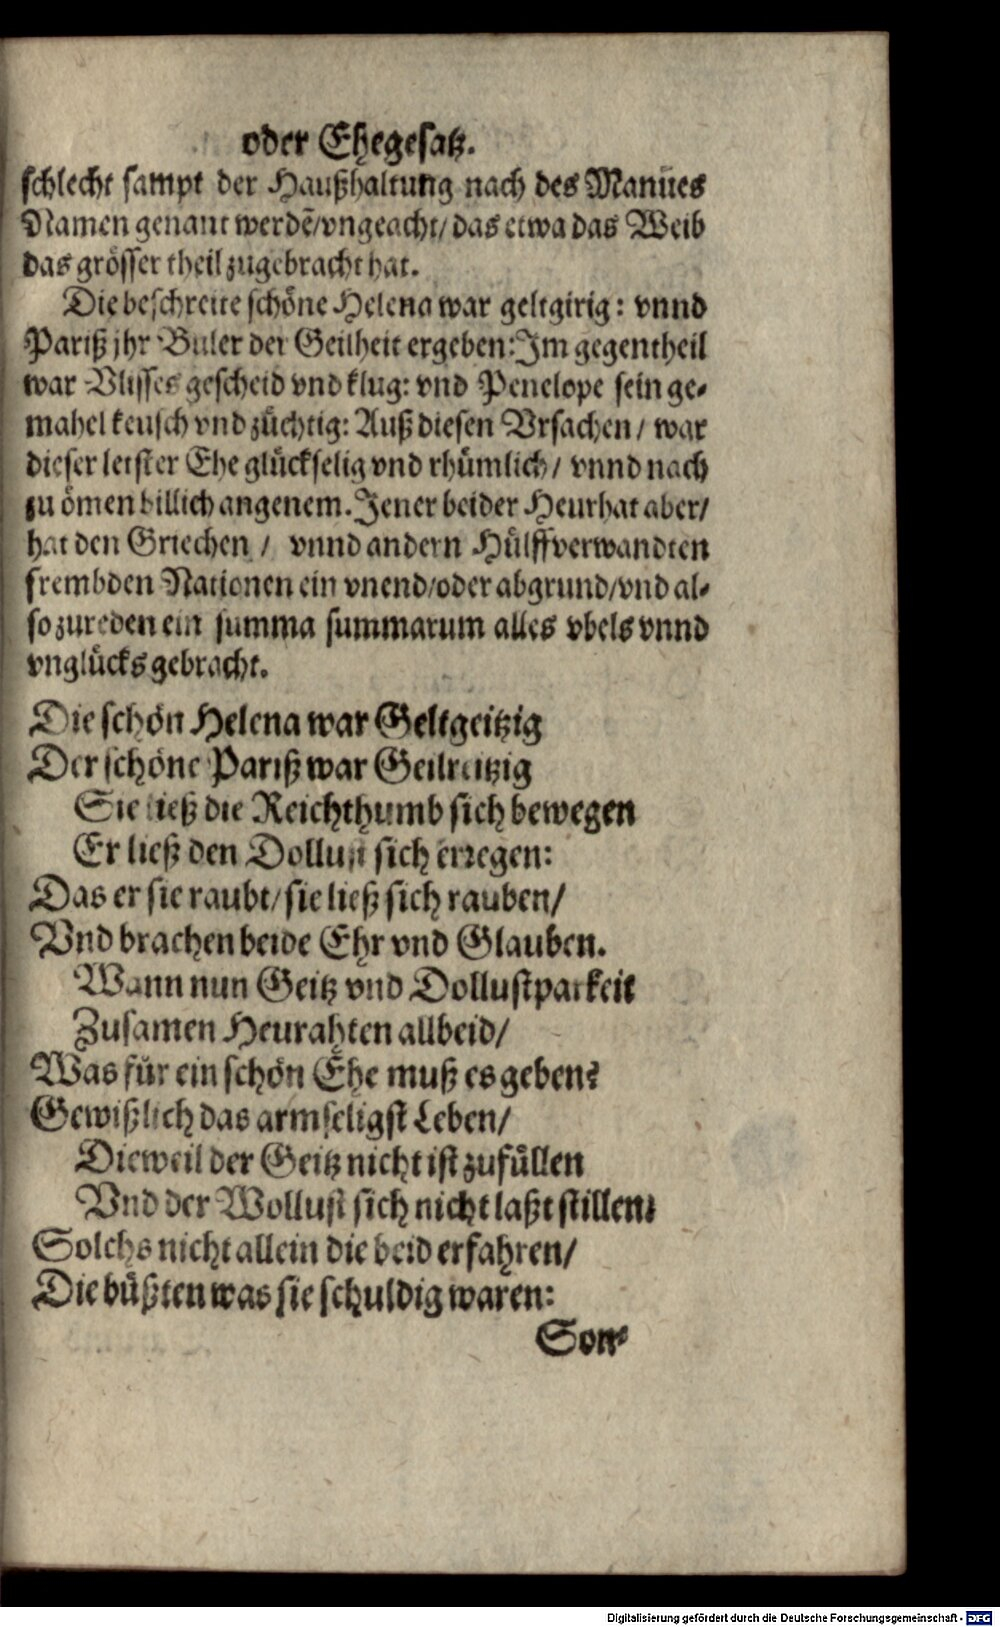 oder Ehegesatz.
schlecht sampt der Haußhaltung nach des Mannes
Namen genant werdẽ/vngeacht/das etwa das Weib
das grösser theil zugebracht hat.
Die beschreite schöne Helena war geltgirig: vnnd
Pariß jhr Buler der Geilheit ergeben: Im gegentheil
war Vlisses gescheid vnd klug: vnd Penelope sein ge-
mahel keusch vnd züchtig: Auß diesen Vrsachen/ war
dieser letster Ehe glückselig vnd rhümlich/ vnnd nach
zu ömen billich angenem. Jener beider Heurhat aber/
hat den Griechen/ vnnd andern Hülffverwandten
frembden Nationen ein vnend/oder abgrund/vnd al-
so zureden ein summa summarum alles vbels vnnd
vnglücks gebracht.
Die schön Helena war Geltgeitzig
Der schöne Pariß war Geilreitzig
Sie ließ die Reichthumb sich bewegen
Er ließ den Dollust sich erregen:
Das er sie raubt/sie ließ sich rauben/
Vnd brachen beide Ehr vnd Glauben.
Wann nun Geitz vnd Dollustparkeit
Zusamen Heurahten allbeid/
Was für ein schön Ehe muß es geben?
Gewißlich das armseligst Leben/
Dieweil der Geitz nicht ist zufüllen
Vnd der Wollust sich nicht laßt stillen:
Solchs nicht allein die beid erfahren/
Die büßten was sie schuldig waren:
Son-
Digitalisierung gefördert durch die Deutsche Forschungsgemeinschaft - DFG